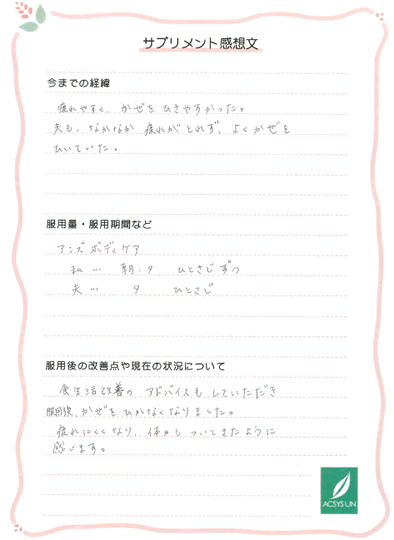 サプリメント感想文
今までの経緯
疲れやすく、かぜをひきやすかった。
夫も、なかなか疲れがとれず、よくかぜを
ひいていた。
服用量・服用期間など
アンズボディケア
私… 朝・夕 ひとさじずつ
夫… 夕 ひとさじ
服用後の改善点や現在の状況について
食生活改善のアドバイスもしていただき
服用後、かぜをひかなくなりました。
疲れにくくなり、体力もついてきたように
感じます。
ACSYSUN